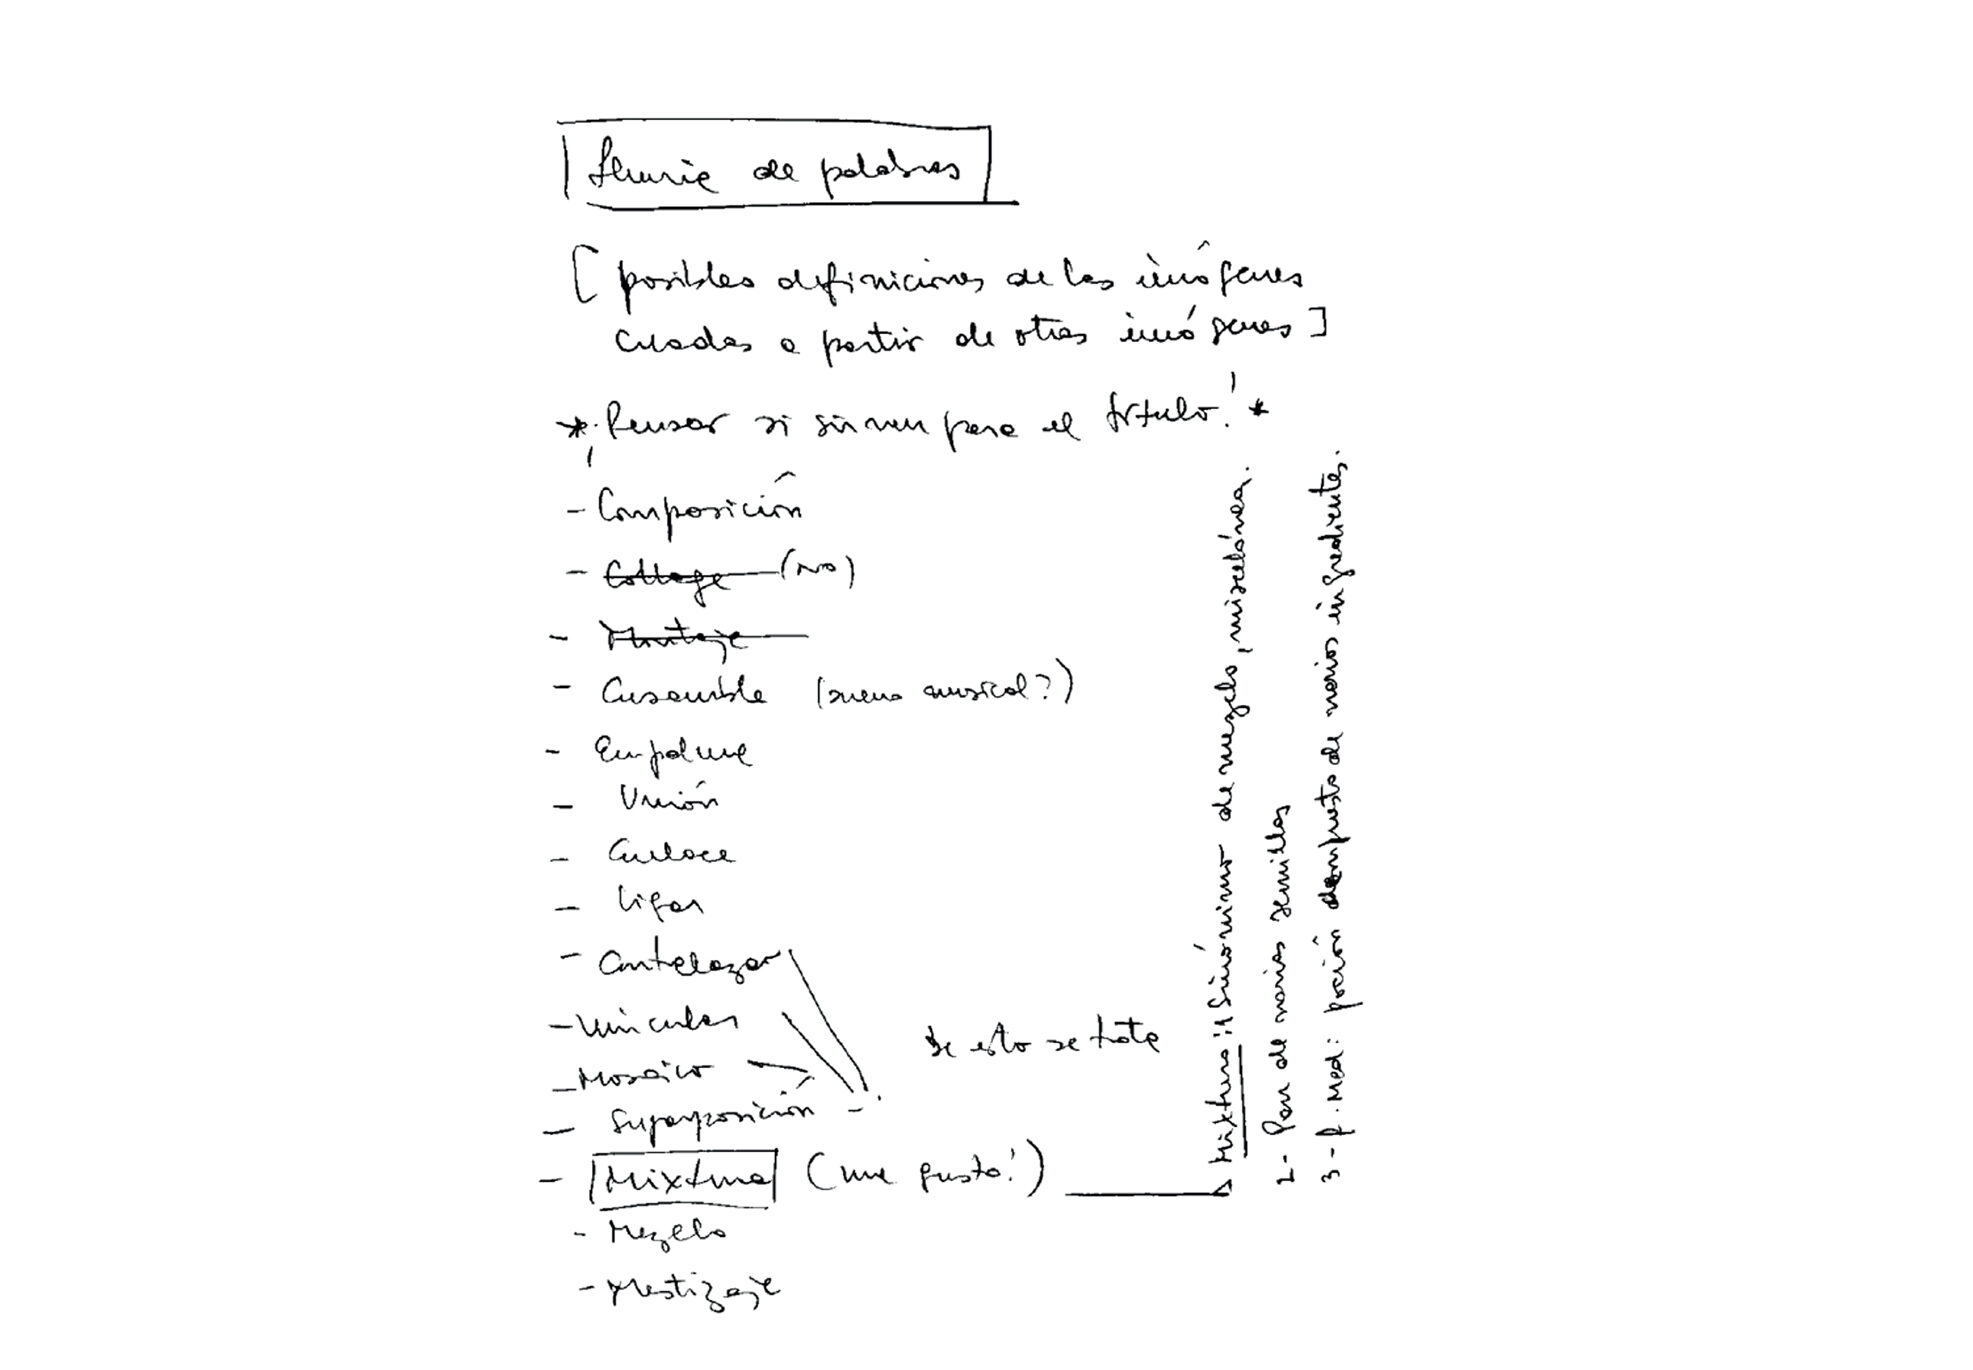 Lluvia de palabras
[posibles definiciones de las imágenes
creadas a partir de otras imágenes]
*¡Pensar si sirven para el título!*
- Composición
- Collage (NO)
- Montaje
- Ensamble (suena musical?)
- Empalme
- Unión
- Enlace
- Ligar
- Entrelazar
- Vincular
- Mosaico
- Superposición
De esto se trata
- Mixtura (me gusta!)
- Mezcla
- Mestizaje
Mixtura: 1 Sinónimo de mezcla, miscelánea.
2- Pan de varias semillas
3- f. Med: poción compuesta de varios ingredientes.